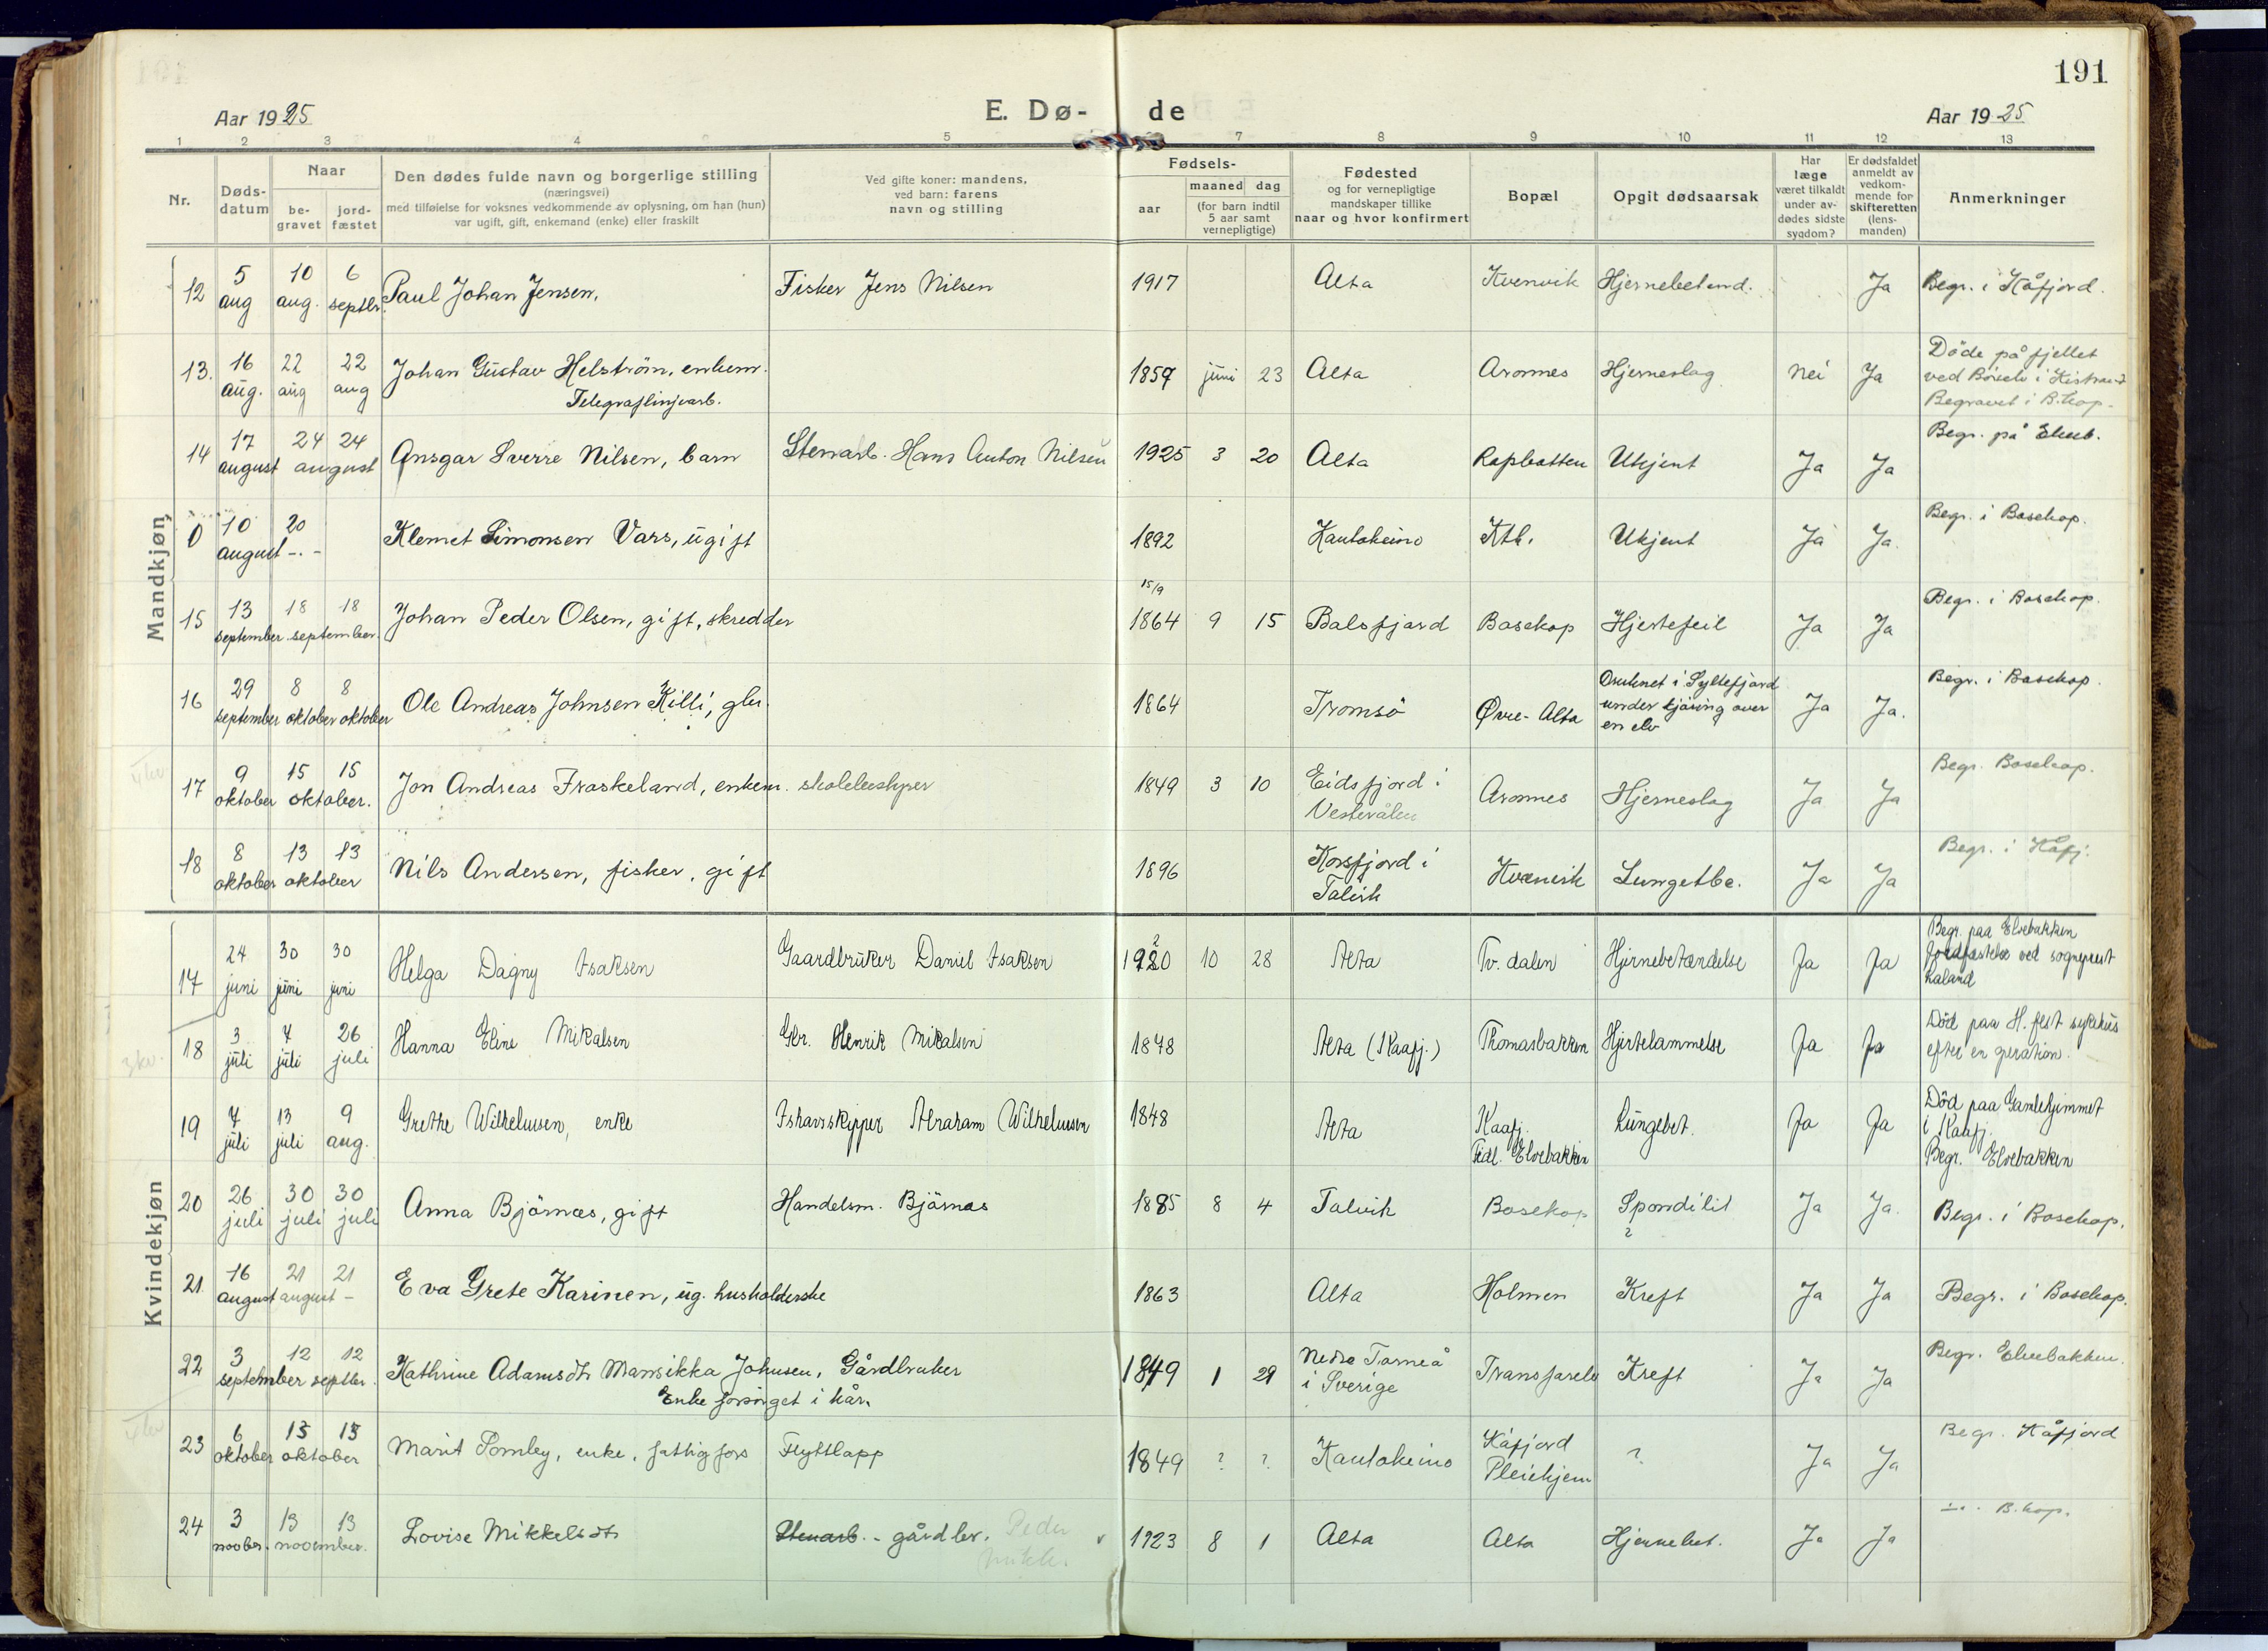 191
Aar 1925
E. Dø-
de
Aar 1925
1 2 3 4 5 7 8 9 10 11 12 13
Nr.
Døds-
datum
Naar
be-
gravet
jord-
fæstet
Den dødes fulde navn og borgerlige stilling
(næringsvei)
med tilføielse for voksnes vedkommende av oplysning, om han (hun)
var ugift, gift, enkemand (enke) eller fraskilt
Ved gifte koner: mandens,
ved barn: farens
navn og stilling
Fødsels-
aar
maaned dag
(for barn indtil
5 aar samt
vernepligtige)
Fødested
og for vernepligtige
mandskaper tillike
naar og hvor konfirmert
Bopæl
Opgit dødsaarsak
Har
læge
været tilkaldt
under av-
dødes sidste
sygdom?
Er dødsfaldet
anmeldt av
vedkom-
mende for
skifteretten
(lens-
manden)
Anmerkninger
Mandkjøn
12 5 aug 10 aug. 6 septbr. Paul Johan Jensen. Fisker Jens Nilsen 1917 Alta Kvenvik Hjernebetend. Ja Begr. i Kåfjord.
13. 16 aug. 22 aug 22 aug Johan Gustav Helström, enkem.
Telegraflinjearb.
1859 juni 23 Alta Aronnes Hjerneslag Nei Ja Döde på fjellet
ved Börselv i Kistrand
Begravet i B.kop.
14 17 august 24 24 august Ansgar Sverre Nilsen, barn Stenarb. Hans Anton Nilsen 1925 3 20 Alta Rapbotten Ukjent Ja Ja Begr. på Elveb.
0 10 august 20 -.- Klemet Simonsen Vars, ugift 1892 Kautokeino Ktk. Ukjent Ja Ja. Begr. i Bosekop.
15 13 september 18 18 september. Johan Peder Olsen, gift, skredder 15/9 1864 9 15 Balsfjord Bosekop Hjertefeil Ja Ja Begr. i Bosekop.
16 29 september 8 oktober 8 oktober Ole Andreas Johnsen Killi, gbr. 1864 Tromsö Øvre-Alta Druknet i Syltefjord
under kjöring over
en elv
Ja Ja. Begr. i Bosekop.
4 kv
17 9 oktober 15 15 oktober. Jon Andreas Fraskeland, enkem. skolebestyrer 1849 3 10 Eidsfjord i
Vesterålen
Aronnes Hjerneslag Ja Ja Begr. Bosekop.
18 8 oktober 13 13 oktober Nils Andersen, fisker, gift 1896 Korsfjord i
Talvik
Kvænvik Lungetbc. Ja Ja Begr. i Kåfj.
Kvindekjøn
17 24 juni 30 juni 30 juni Helga Dagny Isaksen Gaardbruker Daniel Isaksen 1920 10 28 Alta Tv. dalen Hjernebetændelse Ja Ja Begr. paa Elvebakken
Jordfæstelse ved sogneprest
Kaland
3 kv.
18 3 juli 7 juli 26 juli Hanna Eline Mikalsen Gbr. Henrik Mikalsen 1848 Alta (Kaafj.) Thomasbakken Hjertelammelse Ja Ja Död paa H.fest sykehus
efter en operation.
19 7 juli 13 juli 9 aug. Grethe Wilhelmsen, enke Ishavsskipper Abraham Wilhelmsen 1848 Alta Kaafj.
Tidl. Elvebakken
Lungebet. Ja Ja Död paa Gamlehjemmet
i Kaafj.
Begr. Elvebakken
20 26 juli 30 juli 30 juli Anna Björnæs, gift Handelsm. Björnæs 1885 8 4 Talvik Bosekop Spondilit
?
Ja Ja. Begr. i Bosekop.
21 16 august 21 august 21 - Eva Grete Karinen, ug. husholderske 1863 Alta Holmen Kreft Ja Ja Begr. i Bosekop.
22 3 september 12 12 septbr. Kathrine Adamsdtr Mansikka Johnsen, Gårdbruker
Enke forsörget i kår.
1849 1 29 Nedre Torneå
i Sverige
Transfarelv Kreft Ja Ja Begr. Elvebakken.
4 kv
23 6 oktober 15 15 oktober Marit Somby, enke, fattigfors Flyttlapp 1849 ? ? Kautokeino Kåfjord
Pleiehjem
? Ja Ja Begr. Kåfjord
24 3 novbr. 13 13 november. Lovise Mikkelsdtr Stenarb. - gårdbr. Peder
Mikk.
1923 8 1 Alta Alta Hjernebet. Ja Ja -"- B.kop.